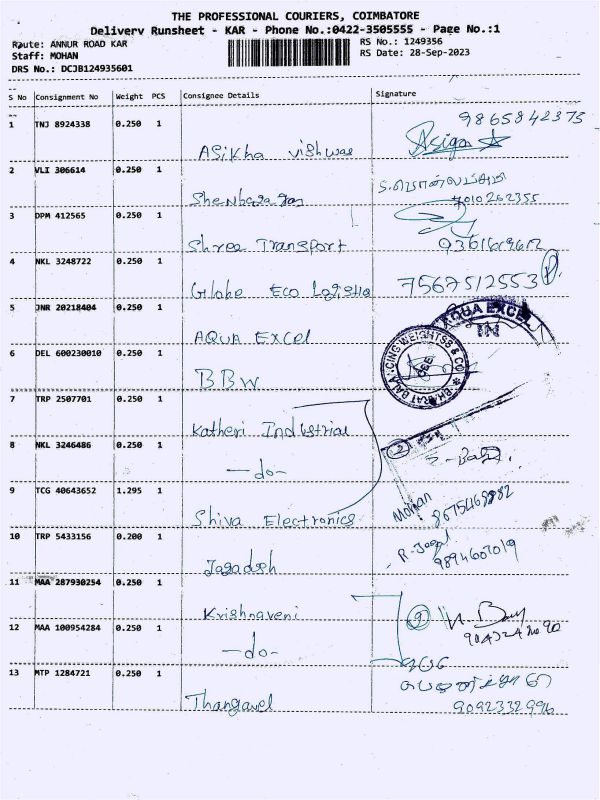 THE PROFESSIONAL COURIERS, COIMBATORE
Delivery Runsheet - KAR - Phone No.:0422-3505555 - Page No.:1
Route: ANNUR ROAD KAR
RS No.: 1249356
Staff: MOHAN
RS Date: 28-Sep-2023
DRS No.: DCJB124935601
S No Consignment No Weight PCS Consignee Details Signature
1 TNJ 8924338 0.250 1 Asikha Vishwas
9865842373
2 VLI 306614 0.250 1 Shenbagaraj
7010262355
3 DPM 412565 0.250 1 Shree Transport
4 NKL 3248722 0.250 1 Globe Eco Logistics 7567512553
5 JNR 20218404 0.250 1 AQUA EXCEL
AQUA EXCEL
IN
6 DEL 600230010 0.250 1 BBW
BHARAT BALANCING WEIGHTSS & CO
7 TRP 2507701 0.250 1 Katheri Industrial
8 NKL 3246486 0.250 1 -do-
2
9 TCG 40643652 1.295 1 Shiva Electronics
Mohan
10 TRP 5433156 0.200 1 Jagadesh
9894607019
11 MAA 287930254 0.250 1 Krishnaveni
2
12 MAA 100954284 0.250 1 -do-
13 MTP 1284721 0.250 1 Thangavel
9092332996